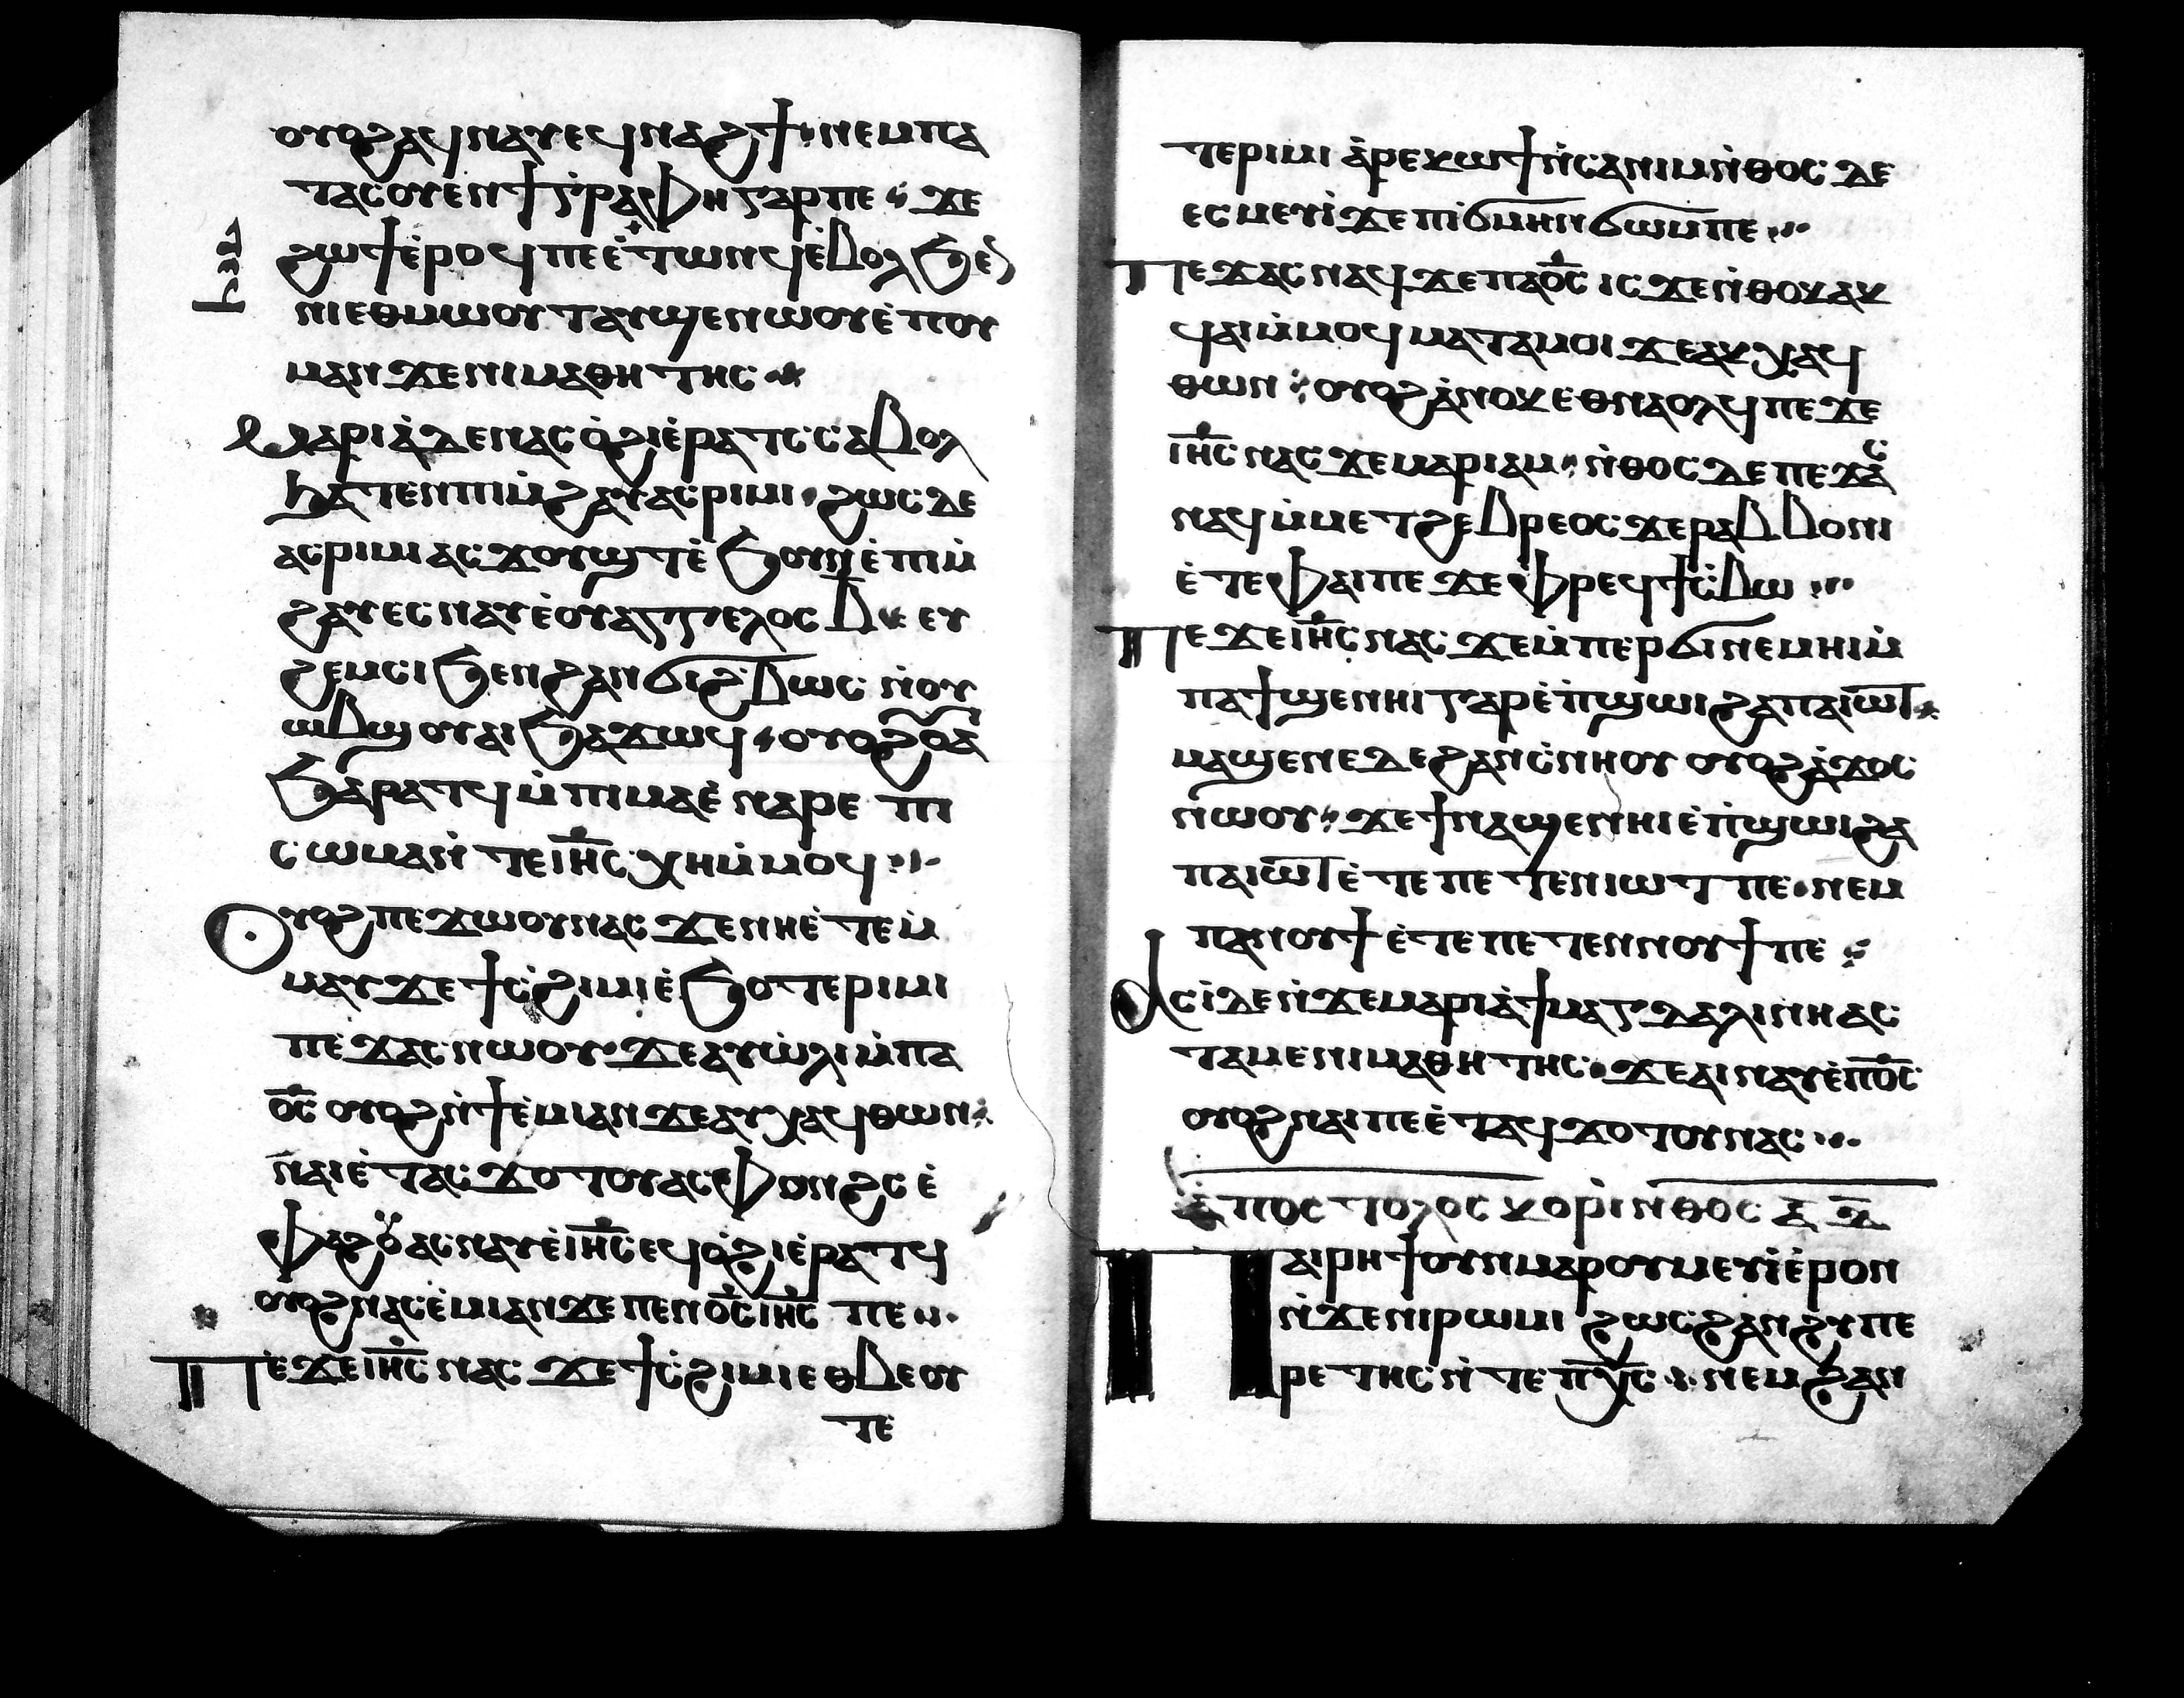 ⲟⲩⲟϩ ⲁϥⲛⲁⲩ ⲉϥⲛⲁϩϯ ⲛⲉ ⲙⲡⲁ
ⲧⲁⲥⲟⲩⲉⲛ ϯⲅⲣⲁⲫⲏ ⲅⲁⲣ ⲡⲉ ϫⲉ
ϩⲱϯ ⲉ̀ⲣⲟϥ ⲡⲉ ⲉ̀ⲧⲱⲛϥ ⲉ̀ⲃⲟⲗ ϧⲉⲛ
ⲛⲓⲉⲑⲙⲱⲟⲩⲧ ⲁⲩϣⲉⲛⲱⲟⲩ ⲉ̀ⲡⲟⲩ
ⲙⲁ ⲛ̀ϫⲉ ⲛⲓⲙⲁⲑⲏⲧⲏⲥ
Ⲙⲁⲣⲓⲁ̀ ⲇⲉ ⲛⲁⲥⲟ̀ϩⲓ ⲉ̀ⲣⲁⲧⲥ ⲥⲁⲃⲟⲗ
ϧⲁⲧⲉⲛ ⲡⲓⲙ̀ϩⲁⲩ ⲁⲥⲣⲓⲙⲓ ϩⲱⲥ ⲇⲉ
ⲁⲥⲣⲓⲙⲓ ⲁⲥϫⲟⲩϣⲧ ⲉ̀ϧⲟⲩⲛ ⲉ̀ⲡⲓⲙ̀
ϩⲁⲩ ⲉⲥⲛⲁⲩ ⲉ̀ⲟⲩⲁⲅⲅⲉⲗⲟⲥ ⲃ̅ ⲉⲩ
ϩⲉⲙⲥⲓ ϧⲉⲛ ϩⲁⲛϭⲓϩ̀ⲃⲱⲥ ⲛ̀ⲟⲩ
ⲱⲃϣ ⲟⲩⲁⲓ ϧⲁϫⲱϥ ⲟⲩⲟϩ ⲟ̅ⲁ̅
ϧⲁⲣⲁⲧϥ ⲙ̀ⲡⲓⲙⲁ ⲉ̀ⲛⲁⲣⲉ ⲡⲓ
ⲥⲱⲙⲁ ⲛ̀ⲧⲉ ⲓⲏ̅ⲥ̅ ⲭⲏ ⲙ̀ⲙⲟϥ
Ⲟⲩⲟϩ ⲡⲉϫⲱⲟⲩ ⲛⲁⲥ ϫⲉ ⲛⲏ ⲉ̀ⲧⲉⲙ̀
ⲙⲁⲩ ϫⲉ ϯⲥ̀ϩⲓⲙⲓ ⲉ̀ϧⲟ ⲧⲉⲣⲓⲙⲓ
ⲡⲉϫⲁⲥ ⲛⲱⲟⲩ ϫⲉ ⲁⲩⲱ̀ⲗⲓ ⲙ̀ⲡⲁ
ⲟ̅ⲥ̅ ⲟⲩⲟϩ ⲛ̀ϯⲉ̀ⲙⲓ ⲁⲛ ϫⲉ ⲁⲩⲭⲁϥ ⲑⲱⲛ
ⲛⲁⲓ ⲉ̀ⲧⲁⲥϫⲟⲧⲟⲩ ⲁⲥⲫⲟⲛϩⲥ ⲉ̀
ⲫⲁϩⲟⲩ ⲁⲥⲛⲁⲩ ⲉ̀ⲓⲏ̅ⲥ̅ ⲉϥⲟ̀ϩⲓ ⲉ̀ⲣⲁⲧϥ
ⲟⲩⲟϩ ⲛⲁⲥⲉ̀ⲙⲓ ⲁⲛ ϫⲉ ⲡⲉⲛⲟ̅ⲥ̅ ⲓⲏ̅ⲥ̅ ⲡⲉ
Ⲡⲉϫⲉ ⲓⲏ̅ⲥ̅ ⲛⲁⲥ ϫⲉ ϯⲥ̀ϩⲓⲙⲓ ⲉⲑⲃⲉⲟⲩ
ⲧⲉ
ⲧⲉⲣⲓⲙⲓ ⲁ̀ⲣⲉⲕⲱϯ ⲛ̀ⲥⲁ ⲛⲓⲙ ⲛ̀ⲑⲟⲥ ⲇⲉ
ⲉⲥⲙⲉⲩⲓ̀ ϫⲉ ⲡⲓϭⲙⲏⲛϭⲱⲙ ⲡⲉ
Ⲡⲉϫⲁⲥ ⲛⲁϥ ϫⲉ ⲡⲁⲟ̅ⲥ̅ ⲓⲥϫⲉ ⲛ̀ⲑⲟⲕ ⲁⲕ
ϥⲁⲓ ⲙ̀ⲙⲟϥ ⲙⲁⲧⲁⲙⲟⲓ ϫⲉ ⲁⲕⲭⲁϥ
ⲑⲱⲛ ⲟⲩⲟϩ ⲁ̀ⲛⲟⲕ ⲉⲑⲛⲁⲟⲗϥ ⲡⲉϫⲉ
ⲓⲏ̅ⲥ̅ ⲛⲁⲥ ϫⲉ ⲙⲁⲣⲓⲁⲙ ⲛ̀ⲑⲟⲥ ⲇⲉ ⲡⲉϫⲁⲥ
ⲛⲁϥ ⲙ̀ⲙⲉⲧϩⲉⲃⲣⲉⲟⲥ ϫⲉ ⲣⲁⲃⲃⲟⲛⲓ
ⲉ̀ⲧⲉ ⲫⲁⲓ ⲡⲉ ϫⲉ ⲫⲣⲉϥϯⲥ̀ⲃⲱ
Ⲡⲉϫⲉ ⲓⲏ̅ⲥ̅ ⲛⲁⲥ ϫⲉ ⲙ̀ⲡⲉⲣϭⲓ ⲛⲉⲙⲏⲓ ⲙ̀
ⲡⲁϯϣⲉⲛⲏⲓ ⲅⲁⲣ ⲉ̀ⲡ̀ϣⲱⲓ ϩⲁ ⲡⲁⲓⲱ̅ⲧ̅
ⲙⲁϣⲉⲛⲉ ⲇⲉ ϩⲁ ⲛⲁⲥ̀ⲛⲏⲟⲩ ⲟⲩⲟϩ ⲁ̀ϫⲟⲥ
ⲛ̀ⲱⲟⲩ ϫⲉ ϯⲛⲁϣⲉⲛⲏⲓ ⲉ̀ⲡ̀ϣⲱⲓ ϩⲁ
ⲡⲁⲓⲱ̅ⲧ̅ ⲉ̀ⲧⲉ ⲡⲉⲧⲉⲛⲓⲱⲧ ⲡⲉ ⲛⲉⲙ
ⲡⲁⲛⲟⲩϯ ⲉ̀ⲧⲉ ⲡⲉⲧⲉⲛⲛⲟⲩϯ ⲡⲉ
Ⲁⲥⲓ̀ ⲇⲉ ⲛ̀ϫⲉ ⲙⲁⲣⲓⲁ̀ ϯⲙⲁⲅⲇⲁⲗⲓⲛⲏ ⲁⲥ
ⲧⲁⲙⲉ ⲛⲓⲙⲁⲑⲏⲧⲏⲥ ϫⲉ ⲁⲓⲛⲁⲩ ⲉ̀ⲡⲟ̅ⲥ̅
ⲟⲩⲟϩ ⲛⲁⲓ ⲡⲉ ⲉ̀ⲧⲁϥϫⲟⲧⲟⲩ ⲛⲁⲥ
ⲁ̀ⲡⲟⲥⲧⲟⲗⲟⲥ ⲕⲟⲣⲓⲛⲑⲟⲥ ⲁ̅ ⲇ̅
Ⲡⲁⲓⲣⲏϯ ⲟⲩⲛ ⲙⲁⲣⲟⲩⲙⲉⲩⲓ̀ ⲉ̀ⲣⲟⲛ
ⲛ̀ϫⲉ ⲛⲓⲣⲱⲙⲓ ϩⲱⲥ ϩⲁⲛϩⲩⲡⲉ
ⲣⲉⲧⲏⲥ ⲛ̀ⲧⲉ ⲡⲭ̅ⲥ̅ ⲛⲉⲙ ϩⲁⲛ